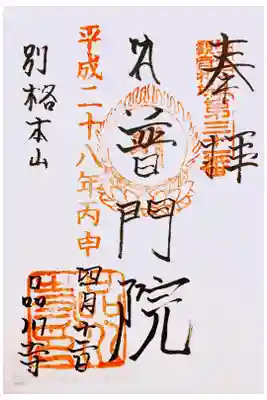 奉拝
普門院
平成二十八年丙申
四月十二日
別格本山
品川寺